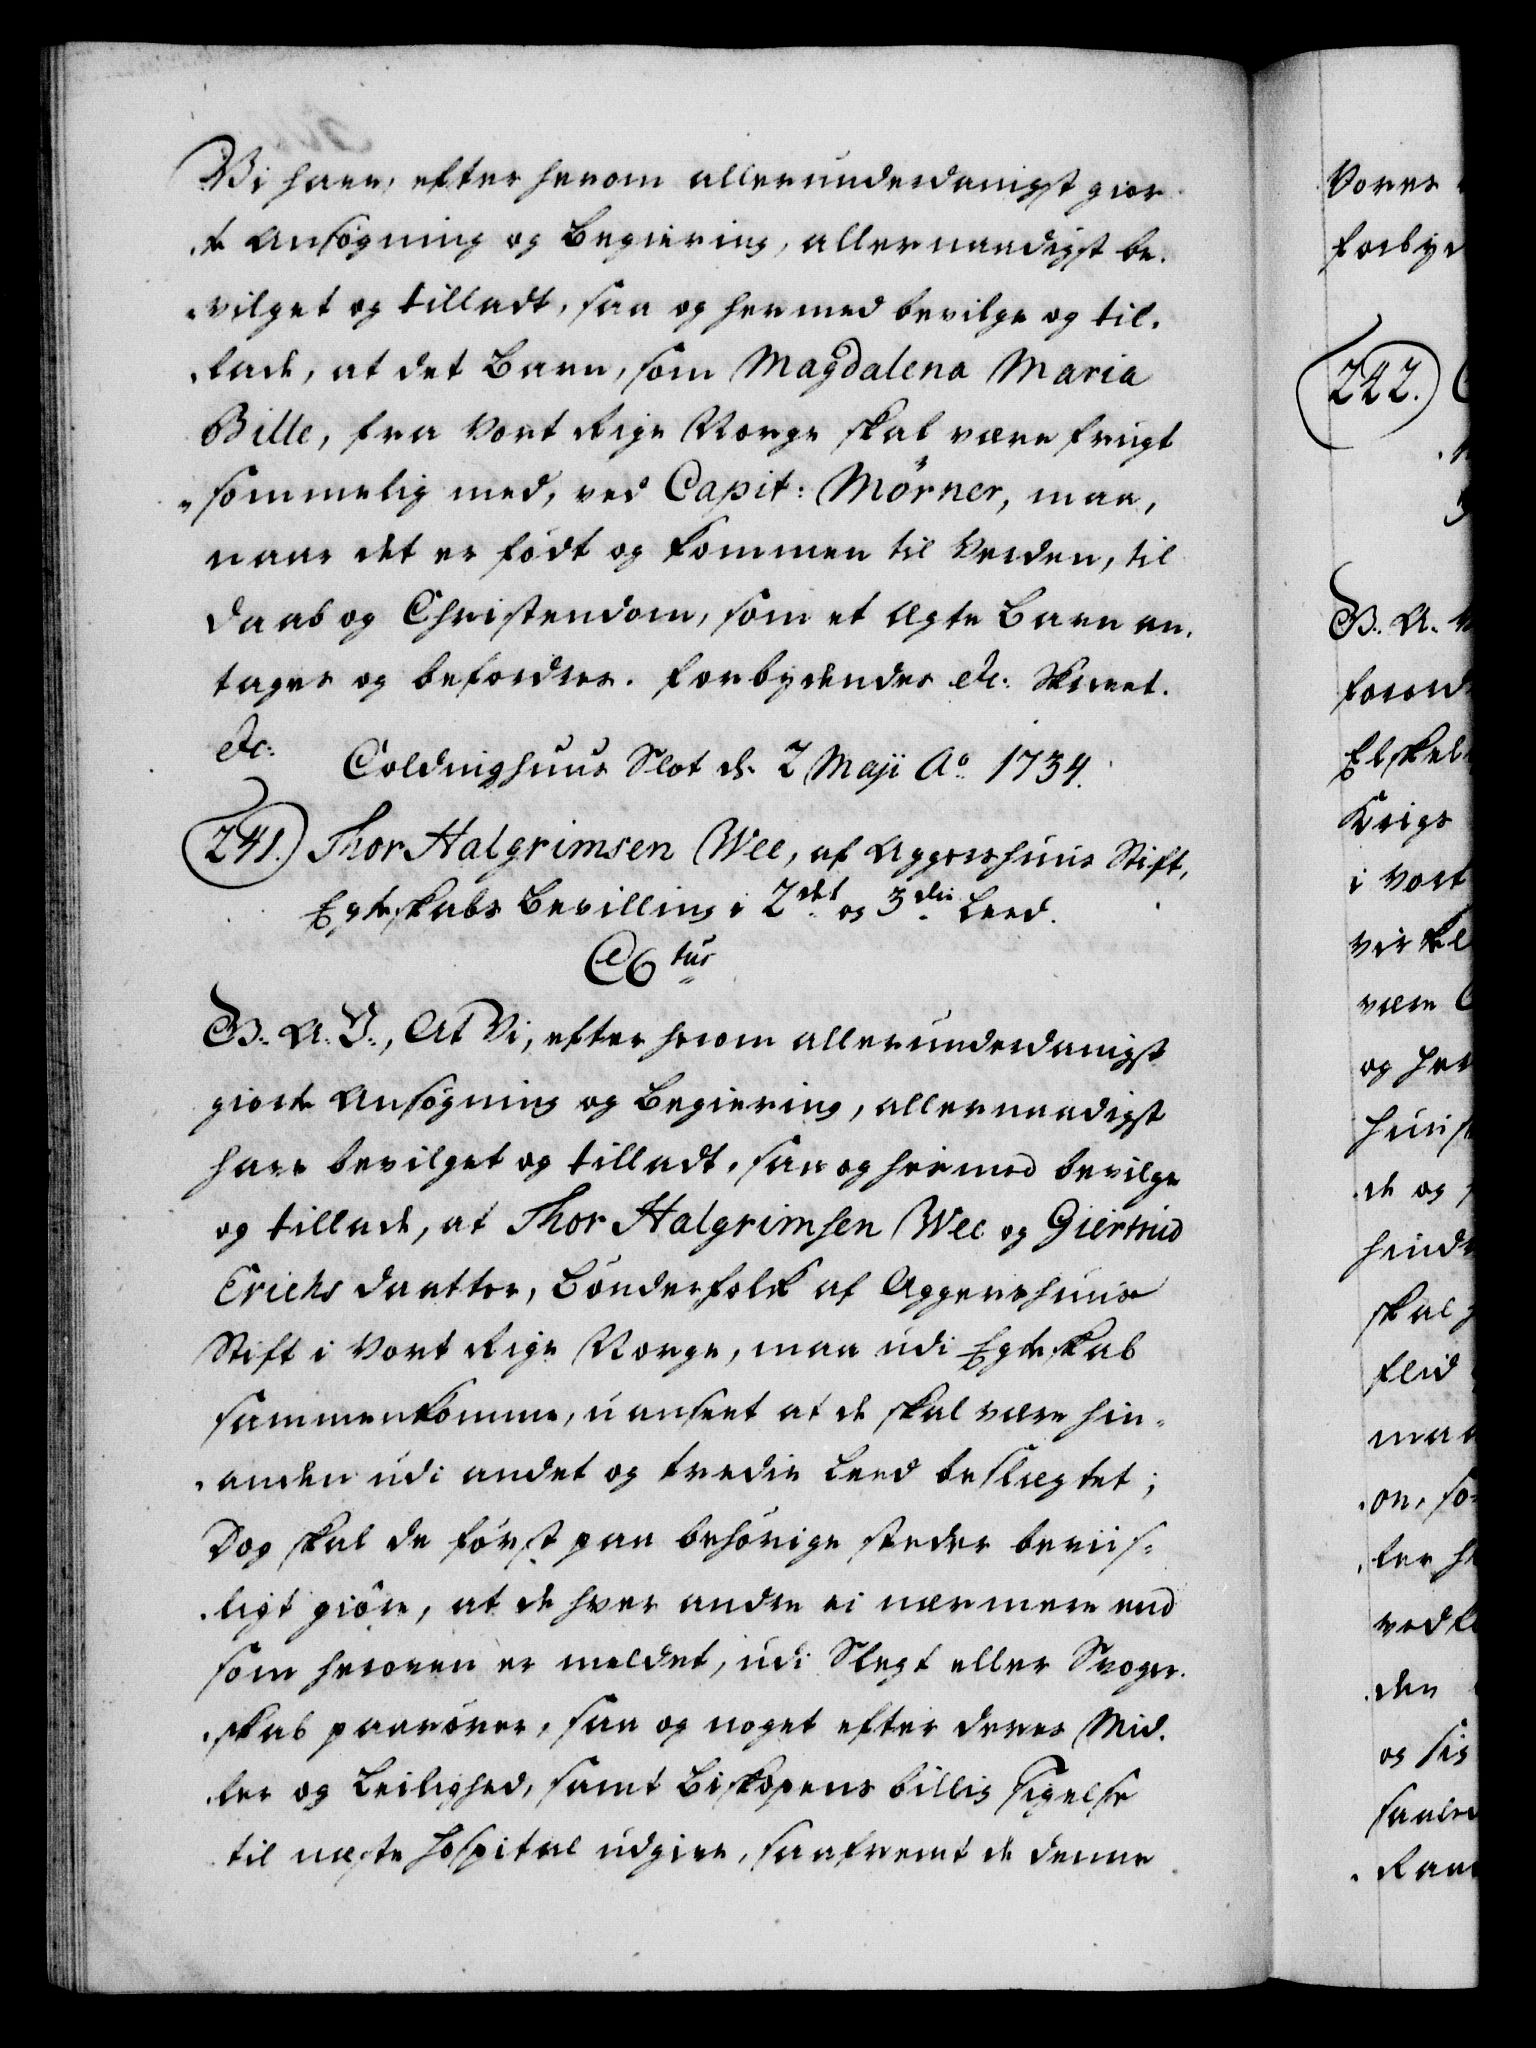 Vi have, efter herom allerunderdanigst gior-
te Ansøgning og Begiering, allernaadigst be-
vilget og tilladt, saa og hermed bevilge og til-
lade, at det Barn, som Magdalena Maria
Bille, fra Vort Rige Norge skal være frugt
sommelig med, ved Capit: Mörner, maa,
naar det er født og kommen til Verden, til
Daab og Christendom, som et ægte Barn an-
tages og befordres. Forbydendes etc: Skrevet.
etc: Coldinghuus Slot d. 2 Maji Ao 1734.
241. Thor Halgrimsen Wee, af Aggershuus Stift,
Egteskabs Bevilling i 2det og 3die Leed.
C6tus
G. A. V., At Vi, efter herom allerunderdanigst
giorte Ansøgning og Begiering, allernaadigst
have bevilget og tilladt, saa og hermed bevilge
og tillade, at Thor Halgrimsen Wee og Giertrud
Erichs Daatter, Bønderfolk af Aggershuus
Stift i Vort Rige Norge, maa udi Egteskab
sammenkomme, uanseet at de skal være hin-
anden udi andet og tredie Leed beslægtet;
Dog skal de først paa behørige steder beviis-
ligt giøre, at de hver andre ei nærmere end
som heroven er meldet, udi Slegt eller Svoger-
skab paarører, saa og noget efter deres Mid-
ler og Leilighed, samt Biskopens billig sigelse
til næste Hospital udgive, saafremt de denne
Vores
forbyd
242.
G. A. V
forord
Elskel
Krigs
i Vort
virkel
være
og her
huus
de og
hind
skal
flid
maa
on, so
ler h
vedk
den
og sig
saale
Raa